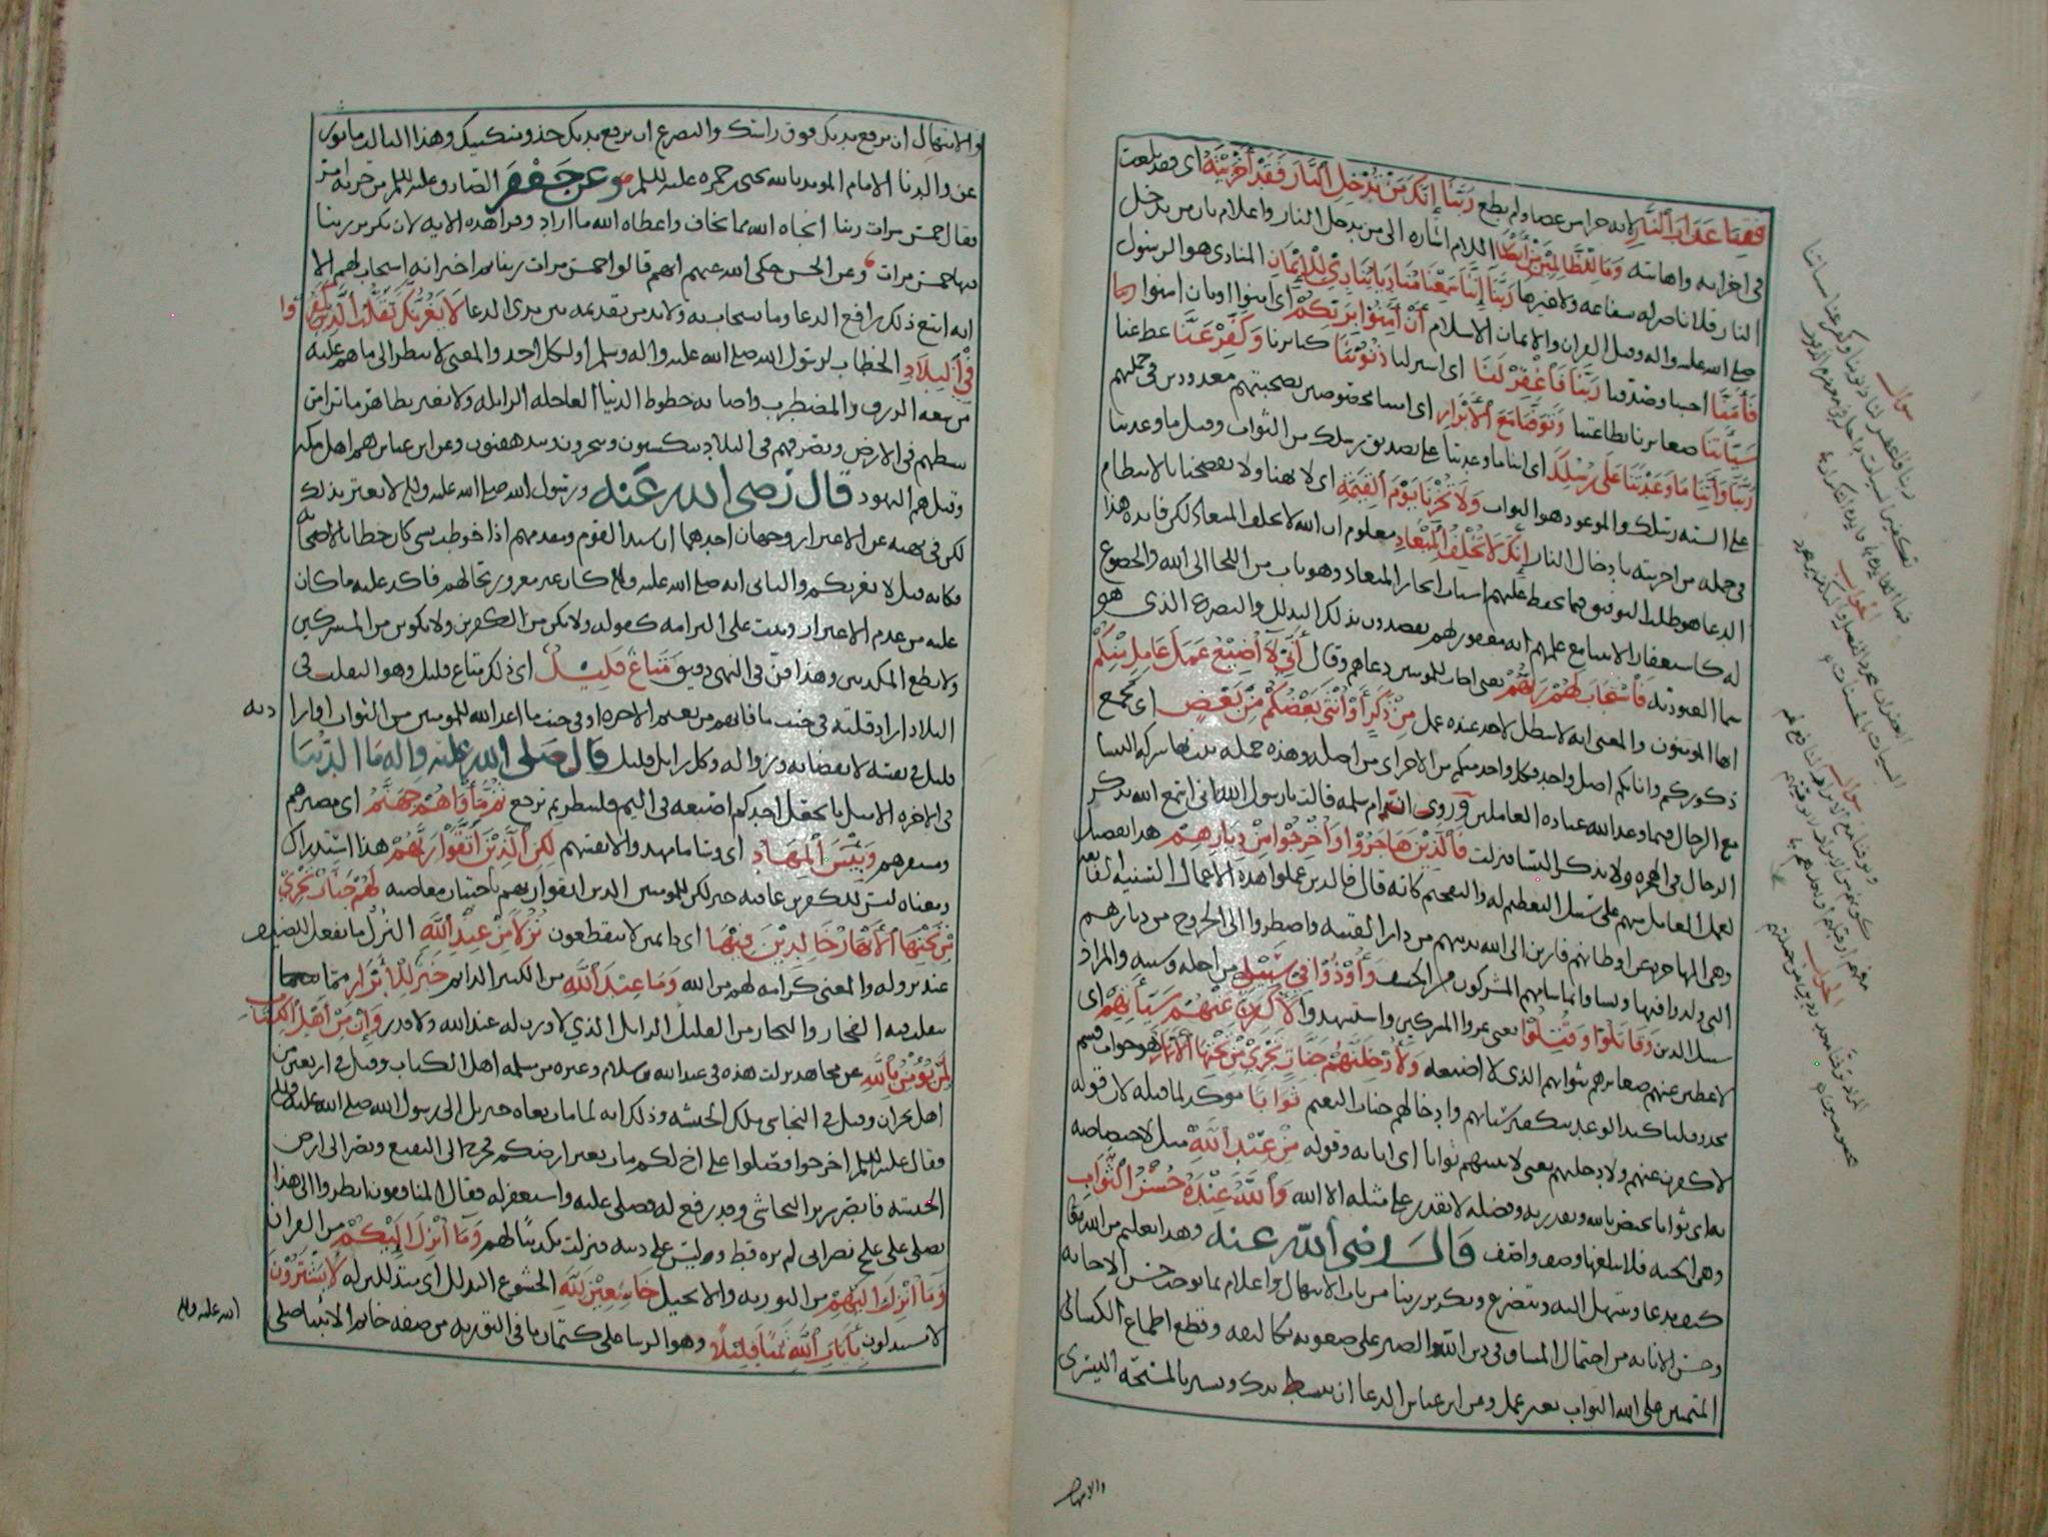 فَقِنَا عَذَابَ النَّارِ لانه جزا من عصا ولم يطع رَبَّنَا إِنَّكَ مَنْ تُدْخِلِ النَّارَ فَقَدْ أَخْزَيْتَهُ اى فقد بلغت
فى اخزايه واهانته وَمَا لِلظَّالِمِينَ مِنْ أَنْصَارٍ اللام اشاره الى من يدخل النار واعلام بان من يدخل
النار فلا ناصر له بشفاعه ولا غيرها رَبَّنَا إِنَّنَا سَمِعْنَا مُنَادِيًا يُنَادِي لِلْإِيمَانِ المنادى هو الرسول
صلى الله عليه واله وقيل القران والايمان الاسلام أَنْ آمِنُوا بِرَبِّكُمْ اى امنوا او بان امنوا
فَآمَنَّا اجبنا وصدقنا رَبَّنَا فَاغْفِرْ لَنَا اى استر لنا ذُنُوبَنَا كبايرنا وَكَفِّرْ عَنَّا غط عنا
سَيِّئَاتِنَا صغايرنا بطاعتنا وَتَوَفَّنَا مَعَ الْأَبْرَارِ اى امتنا مخصوصين بصحبتهم معدودين فى جملتهم
رَبَّنَا وَآتِنَا مَا وَعَدْتَنَا عَلَى رُسُلِكَ اى اتنا ما وعدتنا على تصديق رسلك من الثواب وقيل ما وعدتنا
على السنه رسلك والموعود هو الثواب وَلَا تُخْزِنَا يَوْمَ الْقِيَمَةِ اى لا تهنا ولا تفضحنا بالانتظام
فى جمله من اخزيته بادخال النار إِنَّكَ لَا تُخْلِفُ الْمِيعَادَ معلوم ان الله لا يخلف الميعاد لكن فايده هذا
الدعا هو طلب التوفيق فيما يحفظ عليهم اسباب انجاز الميعاد وهو باب من اللجا الى الله والخضوع
له كاستغفار الانبيا مع علمهم انه مغفور لهم يقصدون بذلك التذلل والتضرع الذى هو
سيما العبوديه فَاسْتَجَابَ لَهُمْ رَبُّهُمْ يعنى اجاب للمومنين دعاهم وقال أَنِّي لَا أُضِيعُ عَمَلَ عَامِلٍ مِنْكُمْ
ايها المومنون والمعنى انه لا يبطل لاحد عنده عمل مِنْ ذَكَرٍ أَوْ أُنْثَى بَعْضُكُمْ مِنْ بَعْضٍ اى يجمع
ذكوركم واناثكم اصل واحد فكل واحد منكم من الاخر اى من اصله وهذه جمله بينت بها شركه النسا
مع الرجال فيما وعد الله عباده العاملين وروى ان ام سلمه قالت يا رسول الله انى اسمع الله يذكر
الرجال فى الهجره ولا يذكر النسا فنزلت فَالَّذِينَ هَاجَرُوا وَأُخْرِجُوا مِنْ دِيَارِهِمْ هذا تفصيل
لعمل العامل منهم على سبيل التعظيم له والتفخيم كانه قال فالذين عملوا هذه الاعمال السنيه الفايقه
وهى المهاجره عن اوطانهم فارين الى الله بدينهم من دار الفتنه واضطروا الى الخروج من ديارهم
التى ولدوا فيها ونشاوا بما سامهم المشركون من الخسف وَأُوذُوا فِي سَبِيلِي من اجله وسببه والمراد
سبيل الدين وَقَاتَلُوا وَقُتِلُوا يعنى غزوا المشركين واستشهدوا لَأُكَفِّرَنَّ عَنْهُمْ سَيِّئَاتِهِمْ اى
لاغطين عنهم صغايرهم بثوابهم الذى لا اضيعه وَلَأُدْخِلَنَّهُمْ جَنَّاتٍ تَجْرِي مِنْ تَحْتِهَا الْأَنْهَارُ هو جواب قسم
محذوف تاكيدا لوعد بتكفير سياتهم وادخالهم جنات النعيم ثَوَابًا موكد لما قبله لان قوله
لاكفرن عنهم ولادخلنهم بمعنى لاثيبنهم ثوابا اى اثابه وقوله مِنْ عِنْدِ اللَّهِ مثل لاختصاصه
به اى ثوابا يختص بالله وبقدرته وفضله لا يقدر على مثله الا الله وَاللَّهُ عِنْدَهُ حُسْنُ الثَّوَابِ
وهو الجنه فلا يبلغها وصف واصف قَالَ رضى الله عنه وهذا تعليم من الله
كيف يدعا ويبتهل اليه ويتضرع وتكرير ربنا من باب الابتهال واعلام بما يوجب حسن الاجابه
وحسن الاثابه من احتمال المشاق فى دين الله والصبر على صعوبه تكاليفه وقطع اطماع الكسالى
المتمنين على الله الثواب بغير عمل وعن ابن عباس الدعا ان تبسط يدك وتشير بالمسبحه اليسرى
والابتها
والابتهال ان ترفع يديك فوق راسك والتضرع ان ترفع يديك حذو منكبيك وهذا الباب ماثور
عن والدنا الامام المويد بالله يحيى بن حمزه عليه السلم وعن جَعْفَر الصادق عليه السلم من حزبه امر
فقال خمس مرات ربنا انجاه الله مما يخاف واعطاه الله ما اراد وقرا هذه الايه لان تكرير ربنا
فيها خمس مرات وعن الحسن حكى الله عنهم انهم قالوا خمس مرات ربنا ثم اخبر انه استجاب لهم الا
انه اتبع ذلك رافع الدعا وما يستجاب به ولا بد من تقدمه بين يدى الدعا لَا يَغُرَّنَّكَ تَقَلُّبُ الَّذِينَ كَفَرُوا
فِي الْبِلَادِ الخطاب لرسول الله صلى الله عليه واله وسلم او لكل احد والمعنى لا تنظر الى ما هم عليه
من سعه الرزق والمضطرب واصابه حظوظ الدنيا العاجله الزايله ولا تغتر بظاهر ما ترا من
تبسطهم فى الارض وتصرفهم فى البلاد يتكسبون ويتجرون وعن ابن عباس هم اهل مكه
وقيل هم اليهود قال رضى الله عنه ورسول الله صلى الله عليه واله لا يغتر بذلك
لكن فى نهيه عن الاغترار وجهان احدهما ان سيد القوم ومقدمهم اذا خوطب بشى كان خطابا لاصحابه
فكانه قيل لا يغرنكم والثانى انه صلى الله عليه واله كان غير مغرور بحالهم فاكد عليه ما كان
عليه من عدم الاغترار وثبت على التزامه كقوله ولا تكن من الكفرين ولا تكونن من المشركين
ولا تطع المكذبين وهذا فن فى النهى دقيق مَتَاعٌ قَلِيلٌ اى ذلك متاع قليل وهو التقلب فى
البلاد اراد قلته فى جنب ما فاتهم من نعيم الاخره او فى جنب ما اعد الله للمومنين من الثواب او اراد انه
قليل فى نفسه لانقضايه وزواله وكل زايل قليل قال صلى الله عليه واله ما الدنيا
فى الاخره الا مثل ما يجعل احدكم اصبعه فى اليم فلينظر بم ترجع ثُمَّ مَأْوَاهُمْ جَهَنَّمُ اى مصيرهم
ومستقرهم وَبِئْسَ الْمِهَادُ اى وسا ما مهدوا لانفسهم لَكِنِ الَّذِينَ اتَّقَوْا رَبَّهُمْ هذا استدراك
ومعناه ليس للكفرين عاقبه خير لكن للمومنين الذين اتقوا ربهم باجتناب معاصيه لَهُمْ جَنَّاتٌ تَجْرِي
مِنْ تَحْتِهَا الْأَنْهَارُ خَالِدِينَ فِيهَا اى دايمين لا ينقطعون نُزُلًا مِنْ عِنْدِ اللَّهِ النزل ما يفعل للضيف
عند نزوله والمعنى كرامه لهم من الله وَمَا عِنْدَ اللَّهِ من الكثير الدايم خَيْرٌ لِلْأَبْرَارِ مما
يتقلب فيه الفجار والتجار من القليل الزايل الذي لا وزن له عند الله ولا قدر وَإِنَّ مِنْ أَهْلِ الْكِتَابِ
لَمَنْ يُؤْمِنُ بِاللَّهِ عن مجاهد نزلت هذه فى عبدالله بن سلام وغيره من مسلمه اهل الكتاب وقيل فى اربعين من
اهل نجران وقيل فى النجاشى ملك الحبشه وذلك انه لما مات نعاه جبريل الى رسول الله صلى الله عليه واله
فقال عليه السلم اخرجوا فصلوا على اخ لكم مات بغير ارضكم فخرج الى البقيع ونظر الى ارض
الحبشه فابصر سرير النجاشى وقد رفع له فصلى عليه واستغفر له فقال المنافقون انظروا الى هذا
يصلى على علج نصرانى لم يره قط وليس على دينه فنزلت تكذيبًا لهم وَمَا أُنْزِلَ إِلَيْكُمْ من القران
وَمَا أُنْزِلَ إِلَيْهِمْ من التوريه والانجيل خَاشِعِينَ لِلَّهِ الخشوع التذلل اى متذللين له لَا يَشْتَرُونَ
لا يستبدلون بِآيَاتِ اللَّهِ ثَمَنًا قَلِيلًا وهو الرشا على كتمان ما فى التوريه من صفه خاتم الانبيا صلى
الله عليه واله